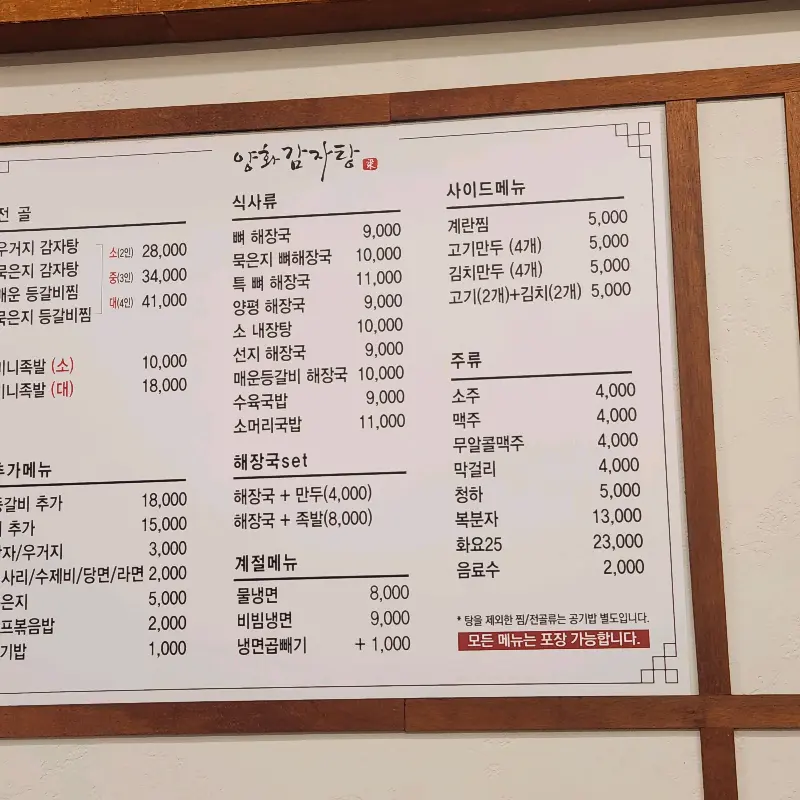 양화감자탕
전 골
우거지 감자탕 소(2인) 28,000
묵은지 감자탕 중(3인) 34,000
매운 등갈비찜 대(4인) 41,000
묵은지 등갈비찜
미니족발 (소) 10,000
미니족발 (대) 18,000
추가메뉴
등갈비 추가 18,000
추가 15,000
감자/우거지 3,000
사리/수제비/당면/라면 2,000
묵은지 5,000
볶음밥 2,000
공기밥 1,000
식사류
뼈 해장국 9,000
묵은지 뼈해장국 10,000
특 뼈 해장국 11,000
양평 해장국 9,000
소 내장탕 10,000
선지 해장국 9,000
매운등갈비 해장국 10,000
수육국밥 9,000
소머리국밥 11,000
해장국set
해장국 + 만두(4,000)
해장국 + 족발(8,000)
계절메뉴
물냉면 8,000
비빔냉면 9,000
냉면곱빼기 + 1,000
사이드메뉴
계란찜 5,000
고기만두 (4개) 5,000
김치만두 (4개) 5,000
고기(2개)+김치(2개) 5,000
주류
소주 4,000
맥주 4,000
무알콜맥주 4,000
막걸리 4,000
청하 5,000
복분자 13,000
화요25 23,000
음료수 2,000
* 탕을 제외한 찜/전골류는 공기밥 별도입니다.
모든 메뉴는 포장 가능합니다.